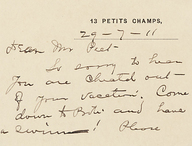 13 PETITS CHAMPS,
29-7-11
Dear Mr Peet-
So sorry to hear
you are cheated out-
of your vacation. Come
down to and have
a swim! Please